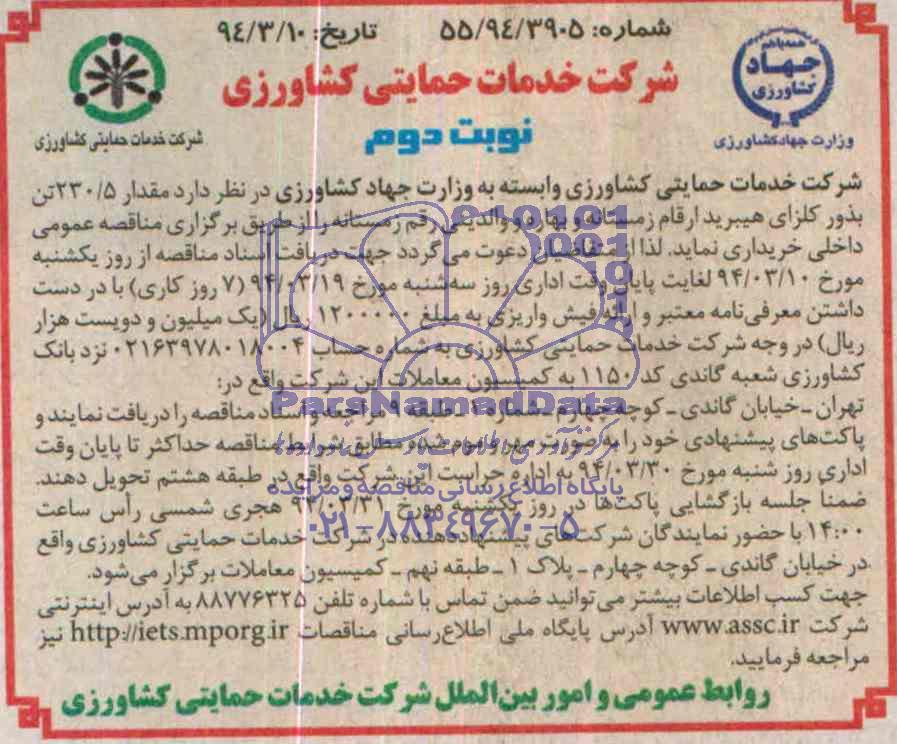 شماره: ۵۵/۹۴/۳۹۰۵ تاریخ: ۹۴/۳/۱۰
همه با هم
جهاد
کشاورزی
وزارت جهاد کشاورزی
شرکت خدمات حمایتی کشاورزی
شرکت خدمات حمایتی کشاورزی
نوبت دوم
شرکت خدمات حمایتی کشاورزی وابسته به وزارت جهاد کشاورزی در نظر دارد مقدار ۲۳۰/۵تن
بذور کلزای هیبرید ارقام زمستانه و بهاره و والدینی رقم زمستانه را از طریق برگزاری مناقصه عمومی
داخلی خریداری نماید. لذا از متقاضیان دعوت می گردد جهت دریافت اسناد مناقصه از روز یکشنبه
مورخ ۹۴/۰۳/۱۰ لغایت پایان وقت اداری روز سه‌شنبه مورخ ۹۴/۰۳/۱۹ (۷ روز کاری) با در دست
داشتن معرفی‌نامه معتبر و ارائه فیش واریزی به مبلغ ۱۲۰۰۰۰۰ ریال (یک میلیون و دویست هزار
ریال) در وجه شرکت خدمات حمایتی کشاورزی به شماره حساب ۰۲۱۶۳۹۷۸۰۱۸۰۰۴ نزد بانک
کشاورزی شعبه گاندی کد ۱۱۵۰ به کمیسیون معاملات این شرکت واقع در:
تهران ـ خیابان گاندی ـ کوچه چهارم ـ شماره ۱ ـ طبقه ۹ مراجعه و اسناد مناقصه را دریافت نمایند و
پاکت‌های پیشنهادی خود را به صورت مهر و موم شده مطابق شرایط مناقصه حداکثر تا پایان وقت
اداری روز شنبه مورخ ۹۴/۰۳/۳۰ به اداره حراست این شرکت واقع در طبقه هشتم تحویل دهند.
ضمناً جلسه بازگشایی پاکت‌ها در روز یکشنبه مورخ ۹۴/۰۳/۳۱ هجری شمسی رأس ساعت
۱۴:۰۰ با حضور نمایندگان شرکت‌های پیشنهاددهنده در شرکت خدمات حمایتی کشاورزی واقع
در خیابان گاندی ـ کوچه چهارم ـ پلاک ۱ ـ طبقه نهم ـ کمیسیون معاملات برگزار می‌شود.
جهت کسب اطلاعات بیشتر می‌توانید ضمن تماس با شماره تلفن ۸۸۷۷۶۳۲۵ به آدرس اینترنتی
شرکت www.assc.ir آدرس پایگاه ملی اطلاع‌رسانی مناقصات http://iets.mporg.ir نیز
مراجعه فرمایید.
روابط عمومی و امور بین‌الملل شرکت خدمات حمایتی کشاورزی
ParsNamadData
پایگاه اطلاع رسانی مناقصه و مزایده
۰۲۱-۸۸۳۴۹۶۷۰-۵